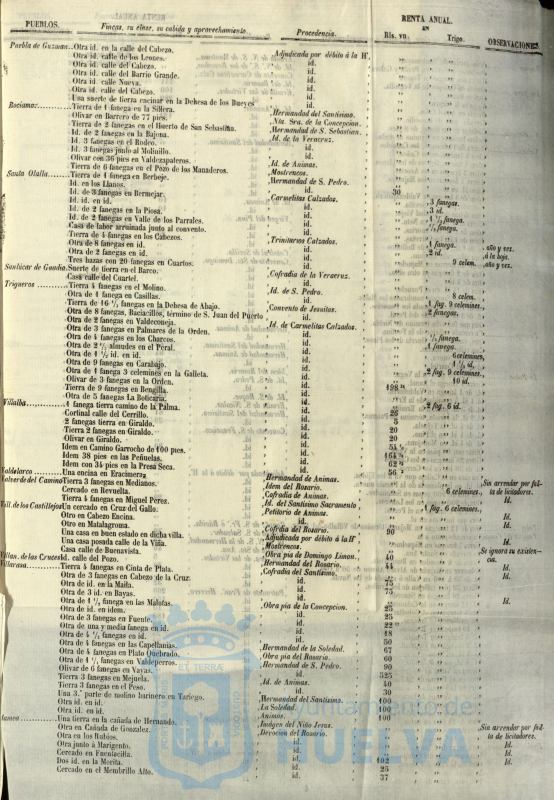 PUEBLOS. Fincas, su clase, su cabida y aprovechamiento. Procedencia. RENTA ANUAL EN Rls. vn. Trigo. OBSERVACIONES.
Puebla de Guzman. Otra id. en la calle del Cabezo.
Otra id. calle de los Leones. Adjudicada por débito á la Hª.
Otra id. calle del Cabezo. id.
Otra id. calle del Barrio Grande. id.
Otra id. calle Nueva. id.
Otra id. calle del Cabezo. id.
Una suerte de tierra encinar en la Dehesa de los Bueyes id.
Tierra de 1 fanega en la Silleta.
Olivar en Barrero de 77 pies. Hermandad del Santisimo.
Tierra de 2 fanegas en el Huerto de San Sebastian. Ntra. Sra. de la Concepcion.
Id. de 2 fanegas en la Bajona. Hermandad de S. Sebastian.
Id. 3 fanegas en el Rodeo. Id. de la Veracruz.
Id. 3 fanegas junto al Molinillo. id.
Olivar con 36 pies en Valdezapateros. id.
Tierra de 6 fanegas en el Pozo de los Manaderos. Id. de Animas.
Santa Olalla. Tierra de 4 fanega en Berbeje. Mostrencos.
Id. en los Llanos. Hermandad de S. Pedro.
Id. de 3 fanegas en Bermejar. id. 30
Id. id. en id. Carmelitas Calzados.
Id. de 2 fanegas en la Piosa. id. 3 fanegas.
Id. de 2 fanegas en Valle de los Parrales. id. 3 id.
Casa de labor arruinada junto al convento. id.
Tierra de 4 fanegas en los Cabezos. id.
Otra de 8 fanegas en id. Trinitarios Calzados.
Otra de 2 fanegas en id. id. 1 fanega. año y vez.
Tres hazas con 20 fanegas en Cuartos. id. 2 id. á la hoja.
Suerte de tierra en el Barco. id. 9 celem. año y vez.
Casa calle del Cuartel. Cofradia de la Veracruz.
Trigueros Tierra 4 fanegas en el Molino. id.
Otra de 4 fanega en Casillas. Id. de S. Pedro. 8 celem.
Tierra de 16 ½ fanegas en la Dehesa de Abajo. id. 1 fag. 9 celemines.
Otra de 8 fanegas, Baciacillos, término de S. Juan del Puerto Convento de Jesuitas. 2 fanegas.
Otra de 2 fanegas en Valdeconeja. id.
Otra de 3 fanegas en Palmares de la Orden. Id. de Carmelitas Calzados.
Otra de 4 fanegas en los Charcos. id. ½ fanega.
Otra de 2 ½ almudes en el Peral. id. 1 fanega.
Otra de 1 ½ id. en id. id. 6 celemines.
Otra de 9 fanegas en Carabajo. id. 1 ½ id.
Otra de 4 fanega 3 celemines en la Galleta. id. 2 fag. 9 celemines.
Olivar de 3 fanegas en la Orden. id. 10 id.
Tierra de 9 fanegas en Bengilla. id.
Otra de 5 fanegas La Boticaria. id.
Villalba 4 fanega tierra camino de la Palma. id. 2 fag. 6 id.
Cortinal calle del Cerrillo. id. 26
2 fanegas tierra en Giraldo. id. 5
Tierra 2 fanegas en Giraldo. id. 20
Olivar en Giraldo. id. 20
Idem en Camino Garrocho de 100 pies. id.
Idem 38 pies en las Peñuelas. id.
Idem con 34 pies en la Presa Seca. id.
Valdelarco Una encina en Eracimera. Hermandad de Animas.
Valverde del Camino Tierra 3 fanegas en Medianos. Idem del Rosario. Sin arrendar por falta de licitadores.
Cercado en Revuelta. Cofradia de Animas. 6 celemines.
Tierra 4 fanegas en Miguel Perez. Id. del Santisimo Sacramento Id.
Vill. de los Castillejos Un cercado en Cruz del Gallo. Petitorio de Animas. 4 fag. 6 celemines.
Otro en Cabezo Encina. id. Id.
Otro en Matalagrana. Cofrdia del Rosario. Id.
Una casa en buen estado en dicha villa. Adjudicada por débito á la Hª 90
Una casa posada calle de la Viña. Mostrencos. Id.
Casa calle de Buenavista. Obra pia de Domingo Limon. Se ignora su existencia.
Villan. de las Cruces Id. calle del Pozo. Hermandad del Rosario. 40
Villarasa Tierra 4 fanegas en Cinta de Plata. Cofradia del Santisimo. 44 Id.
Otra de 3 fanegas en Cabezo de la Cruz. id.
Otra de id. en la Maita. id. 75
Otra de 3 id. en Bayas. id. 75
Otra de 4 ½ fanega en las Malotas. Obra pia de la Concepcion. Id.
Otra de id. en idem. id. 25
Otra de 3 fanegas en Fuente. id. 25
Otra de una y media fanega en id. id.
Otra de 4 ½ fanegas en id. id. 18
Otra de 4 fanegas en las Capellanias. id. 50
Otra de 4 fanegas en Plato Quebrado. Hermandad de la Soledad. 67
Otra de 4 ½ fanegas en Valdeperros. Obra pia del Rosario. 60
Olivar de 6 fanegas en Vayas. Hermandad de S. Pedro. 90
Tierra 3 fanegas en Mejuela. id. 325
Tierra 3 fanegas en el Peso. Id. de Animas. 40
Una 3.ª parte de molino harinero en Tariego. id. 30
Otra id. en id. Hermandad del Santisimo. 100
Otra id. en id. La Soledad. 100
Una tierra en la cañada de Hernando. Animas. 100
Otra en Cañada de Gonzalez. Imágen del Niño Jesus. Sin arrendar por falta de licitadores.
Otra en los Rubios. Devocion del Rosario.
Otra junto á Marigento. id. Id.
Cercado en Fuentecilla. id. Id.
Dos id. en la Merita. id. 102 Id.
Cercado en el Membrillo Alto. id. 25 Id.
id. 37
Ayuntamiento de
HUELVA